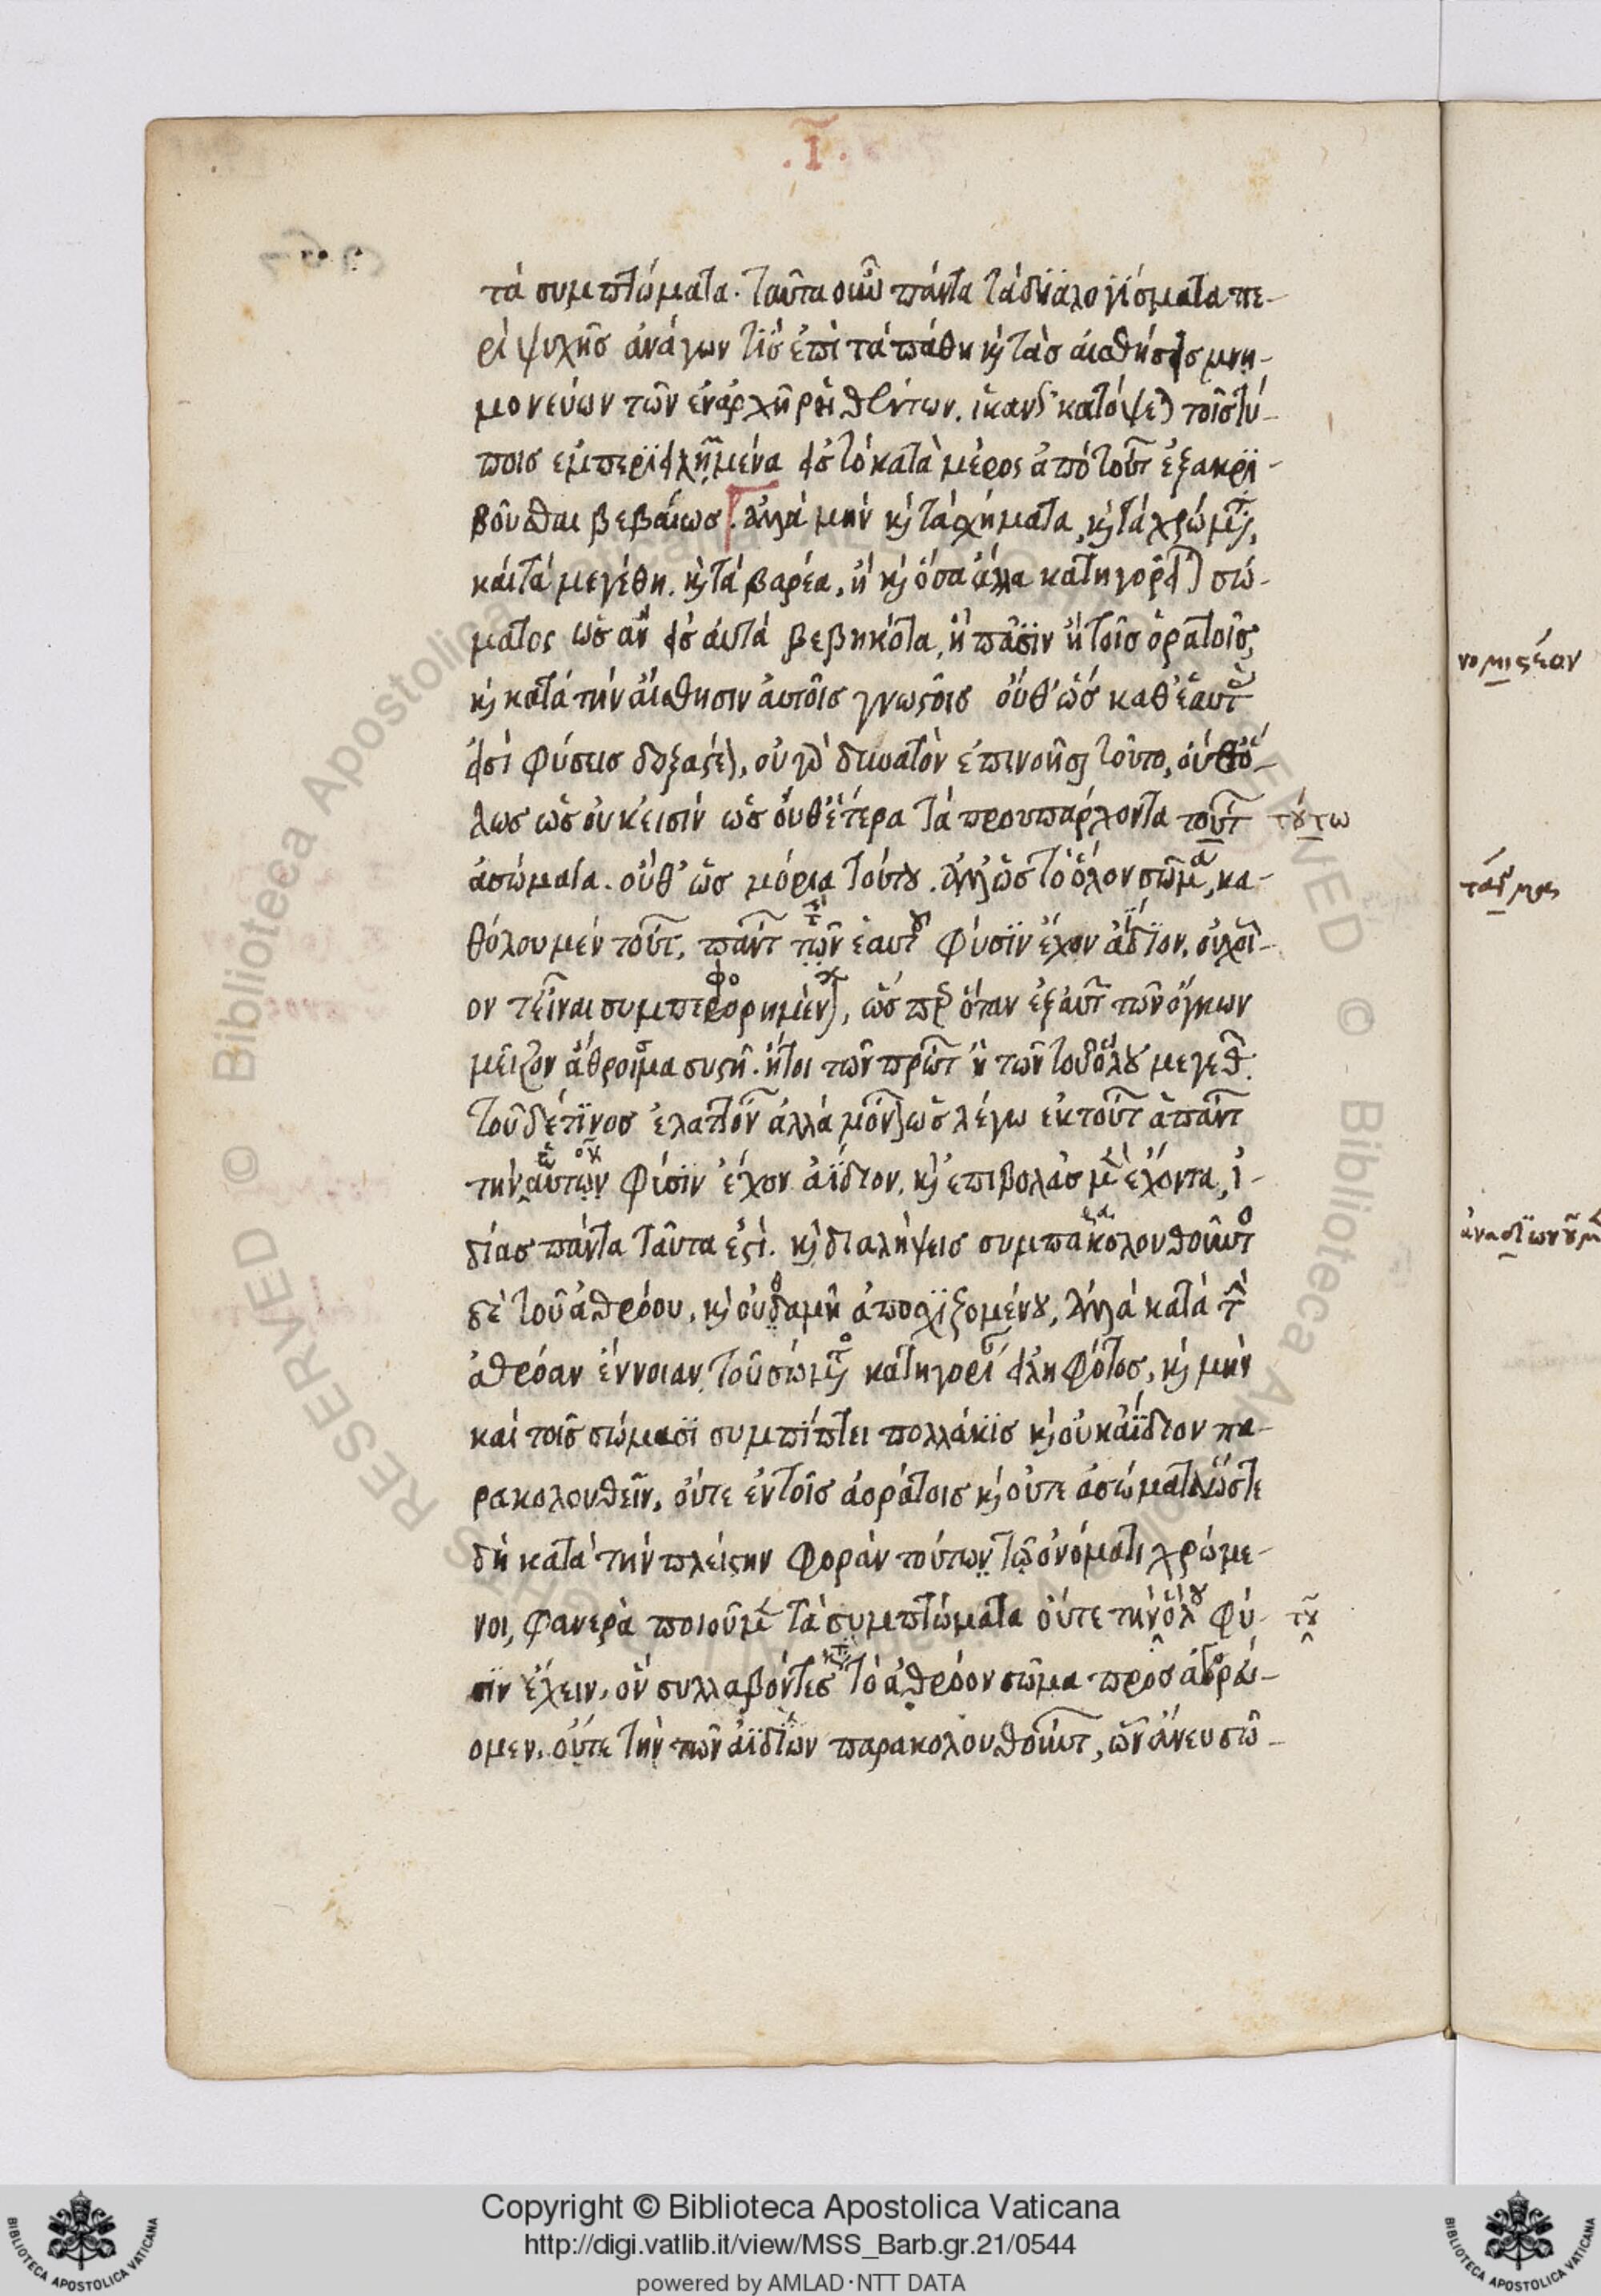 .Ι.
τὰ συμπτώματα. ταῦτα οὖν πάντα τὰ διαλογίσματα πε-
ρὶ ψυχῆς ἀνάγων τίς ἐπὶ τὰ πάθη καὶ τὰς αἰσθήσεις μνη-
μονεύων τῶν ἐν ἀρχῇ ῥηθέντων. ἱκανῶς κατόψεται τοῖς τύ-
ποις ἐμπεριειλημμένα εἰς τὸ κατὰ μέρος ἀπὸ τούτων ἐξακρι-
βοῦσθαι βεβαίως. ἀλλὰ μὴν καὶ τὰ σχήματα, καὶ τὰ χρώματα,
καὶ τὰ μεγέθη. καὶ τὰ βαρέα, ἢ καὶ ὅσα ἄλλα κατηγορεῖται σώ-
ματος ὡς ἂν εἰς αὐτὰ βεβηκότα, ἢ πᾶσιν ἢ τοῖς ὁρατοῖς,
καὶ κατὰ τὴν αἴσθησιν αὐτοῖς γνωστοῖς οὔθ' ὡς καθ' ἑαυτὰς
εἰσὶ φύσεις δοξαστέον, οὐ γὰρ δυνατὸν ἐπινοῆσαι τοῦτο, οὔθ' ὅ-
λως ὡς οὐκ εἰσὶν ὡς οὔθ' ἕτερα τὰ προυπάρχοντα τούτ τούτω
ἀσώματα. οὔθ' ὡς μόρια τούτου. ἀλλ' ὡς τὸ ὅλον σῶμα, κα-
θόλου μὲν τούτ, παντ τὴν ἑαυτοῦ φύσιν ἔχον ἀΐδιον, οὐχ οἷ-
ον τ' εἶναι συμπεφορημένων, ὥσπερ ὅταν ἐξ αὐτῶν τῶν ὄγκων
μεῖζον ἄθροισμα συστῇ. ἤτοι τῶν πρώτων ἢ τῶν τοῦ ὅλου μεγεθῶν
τοῦδέ τινος ἐλαττόνων ἀλλὰ μόνον ὡς λέγω ἐκ τούτων ἁπάντων
τὴν ἑαυτῶν φύσιν ἔχον ἀΐδιον, καὶ ἐπιβολὰς μὲν ἔχοντα, ἰ-
δίας πάντα ταῦτα ἐστὶ. καὶ διαλήψεις συμπαρακολουθοῦντος
δὲ τοῦ ἀθρόου, καὶ οὐδαμῇ ἀποσχιζομένου, ἀλλὰ κατὰ τὴν
ἀθρόαν ἔννοιαν τοῦ σώματος κατηγορίαν εἰληφότος, καὶ μὴν
καὶ τοῖς σώμασι συμπίπτει πολλάκις καὶ οὐκ ἀΐδιον πα-
ρακολουθεῖν, οὔτε ἐν τοῖς ἀοράτοις καὶ οὔτε ἀσώματα ὥστε
δὴ κατὰ τὴν πλείστην φορὰν τούτων τῷ ὀνόματι χρώμε-
νοι, φανερὰ ποιοῦμεν τὰ συμπτώματα οὔτε τὴν ὅλου φύ- τοῦ
σιν ἔχειν, ὃν συλλαβόντες κατὰ τὸ ἀθρόον σῶμα προσαγορεύ-
ομεν, οὔτε τὴν τῶν ἀϊδίων παρακολουθούντων, ὧν ἄνευ σῶ-
Copyright © Biblioteca Apostolica Vaticana
http://digi.vatlib.it/view/MSS_Barb.gr.21/0544
powered by AMLAD·NTT DATA